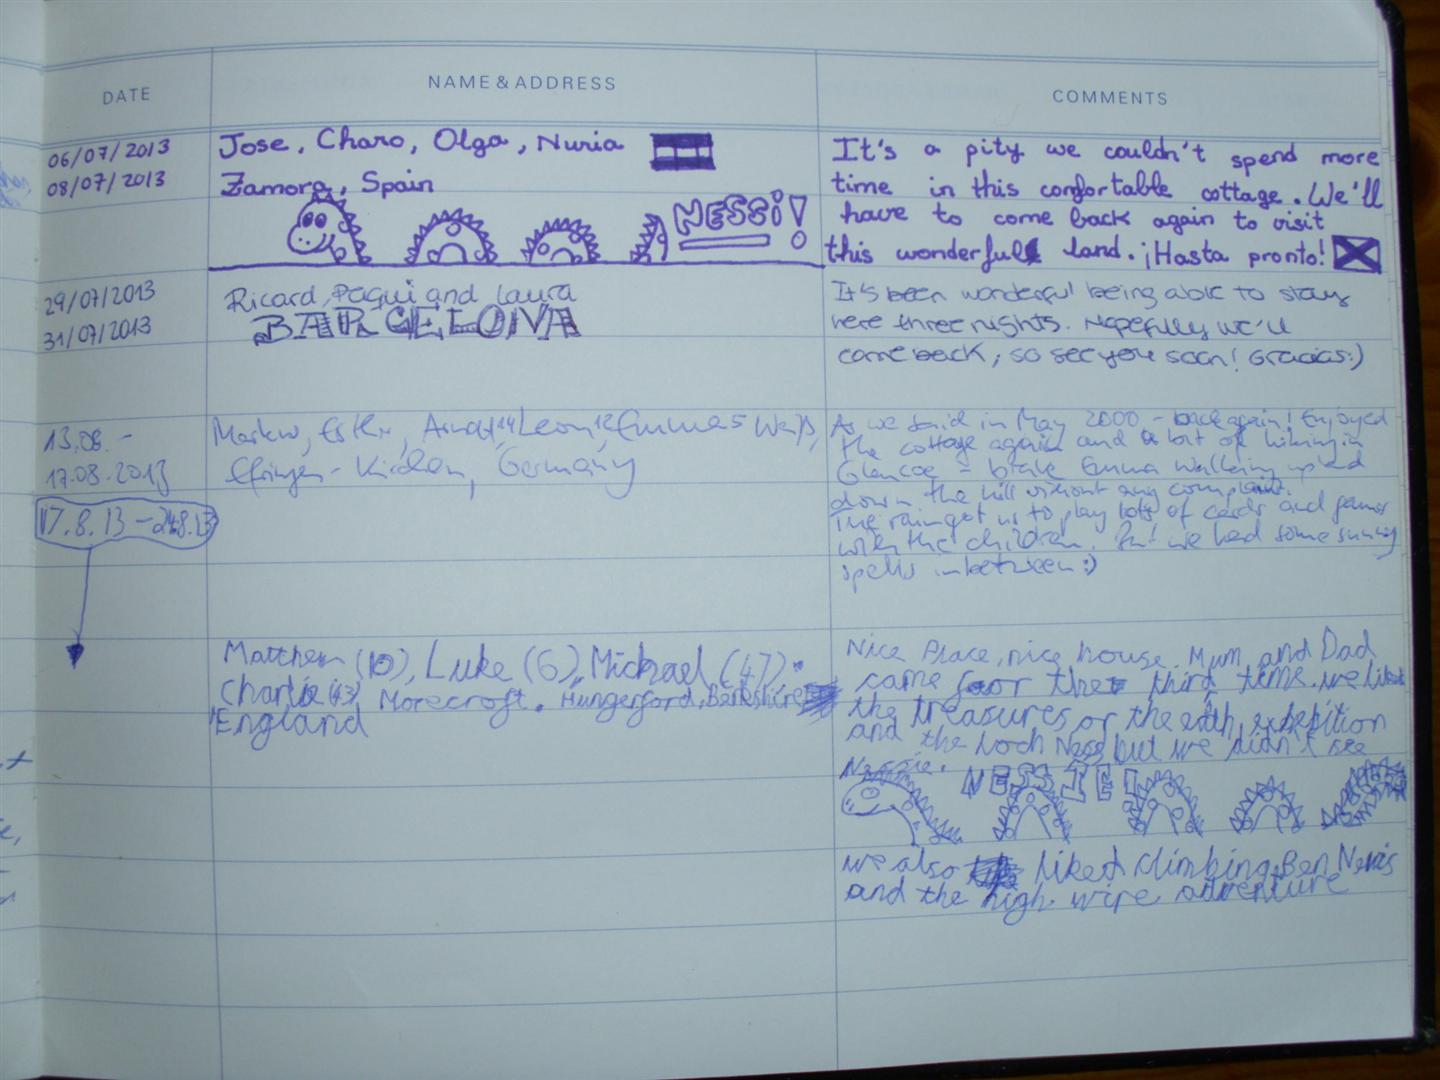 DATE
NAME & ADDRESS
COMMENTS
06/07/2013
08/07/2013
Jose, Charo, Olga, Nuria
Zamora, Spain
NESSi!
It's a pity we couldn't spend more
time in this comfortable cottage. We'll
have to come back again to visit
this wonderful land. ¡Hasta pronto!
29/07/2013
31/07/2013
Ricard, Paqui and Laura
BARCELONA
It's been wonderful being able to stay
here three nights. Hopefully we'll
come back, so see you soon! Gracias:)
13.08. -
17.08.2013
Esther, 14 Leon 12 Emma 5
Efringen-Kirchen, Germany
As we said in May 2000 - back again! Enjoyed
the cottage again and a lot of hiking in
Glencoe - Emma walking up and
down the hill without any complaint.
The rain got us to play lots of cards and games
with the children. But we had some sunny
spells inbetween:)
17.8.13 - 24.8.13
Matthew (10), Luke (6), Michael (47).
Charlie (43) Morecroft. Hungerford, Berkshire
England
Nice Place, nice house. Mum and Dad
came for the third time. we liked
the treasures of the earth exhibition
and the Loch Ness but we didn't see
Nessie.
NESSIE!
we also liked climbing Ben Nevis
and the high wire adventure